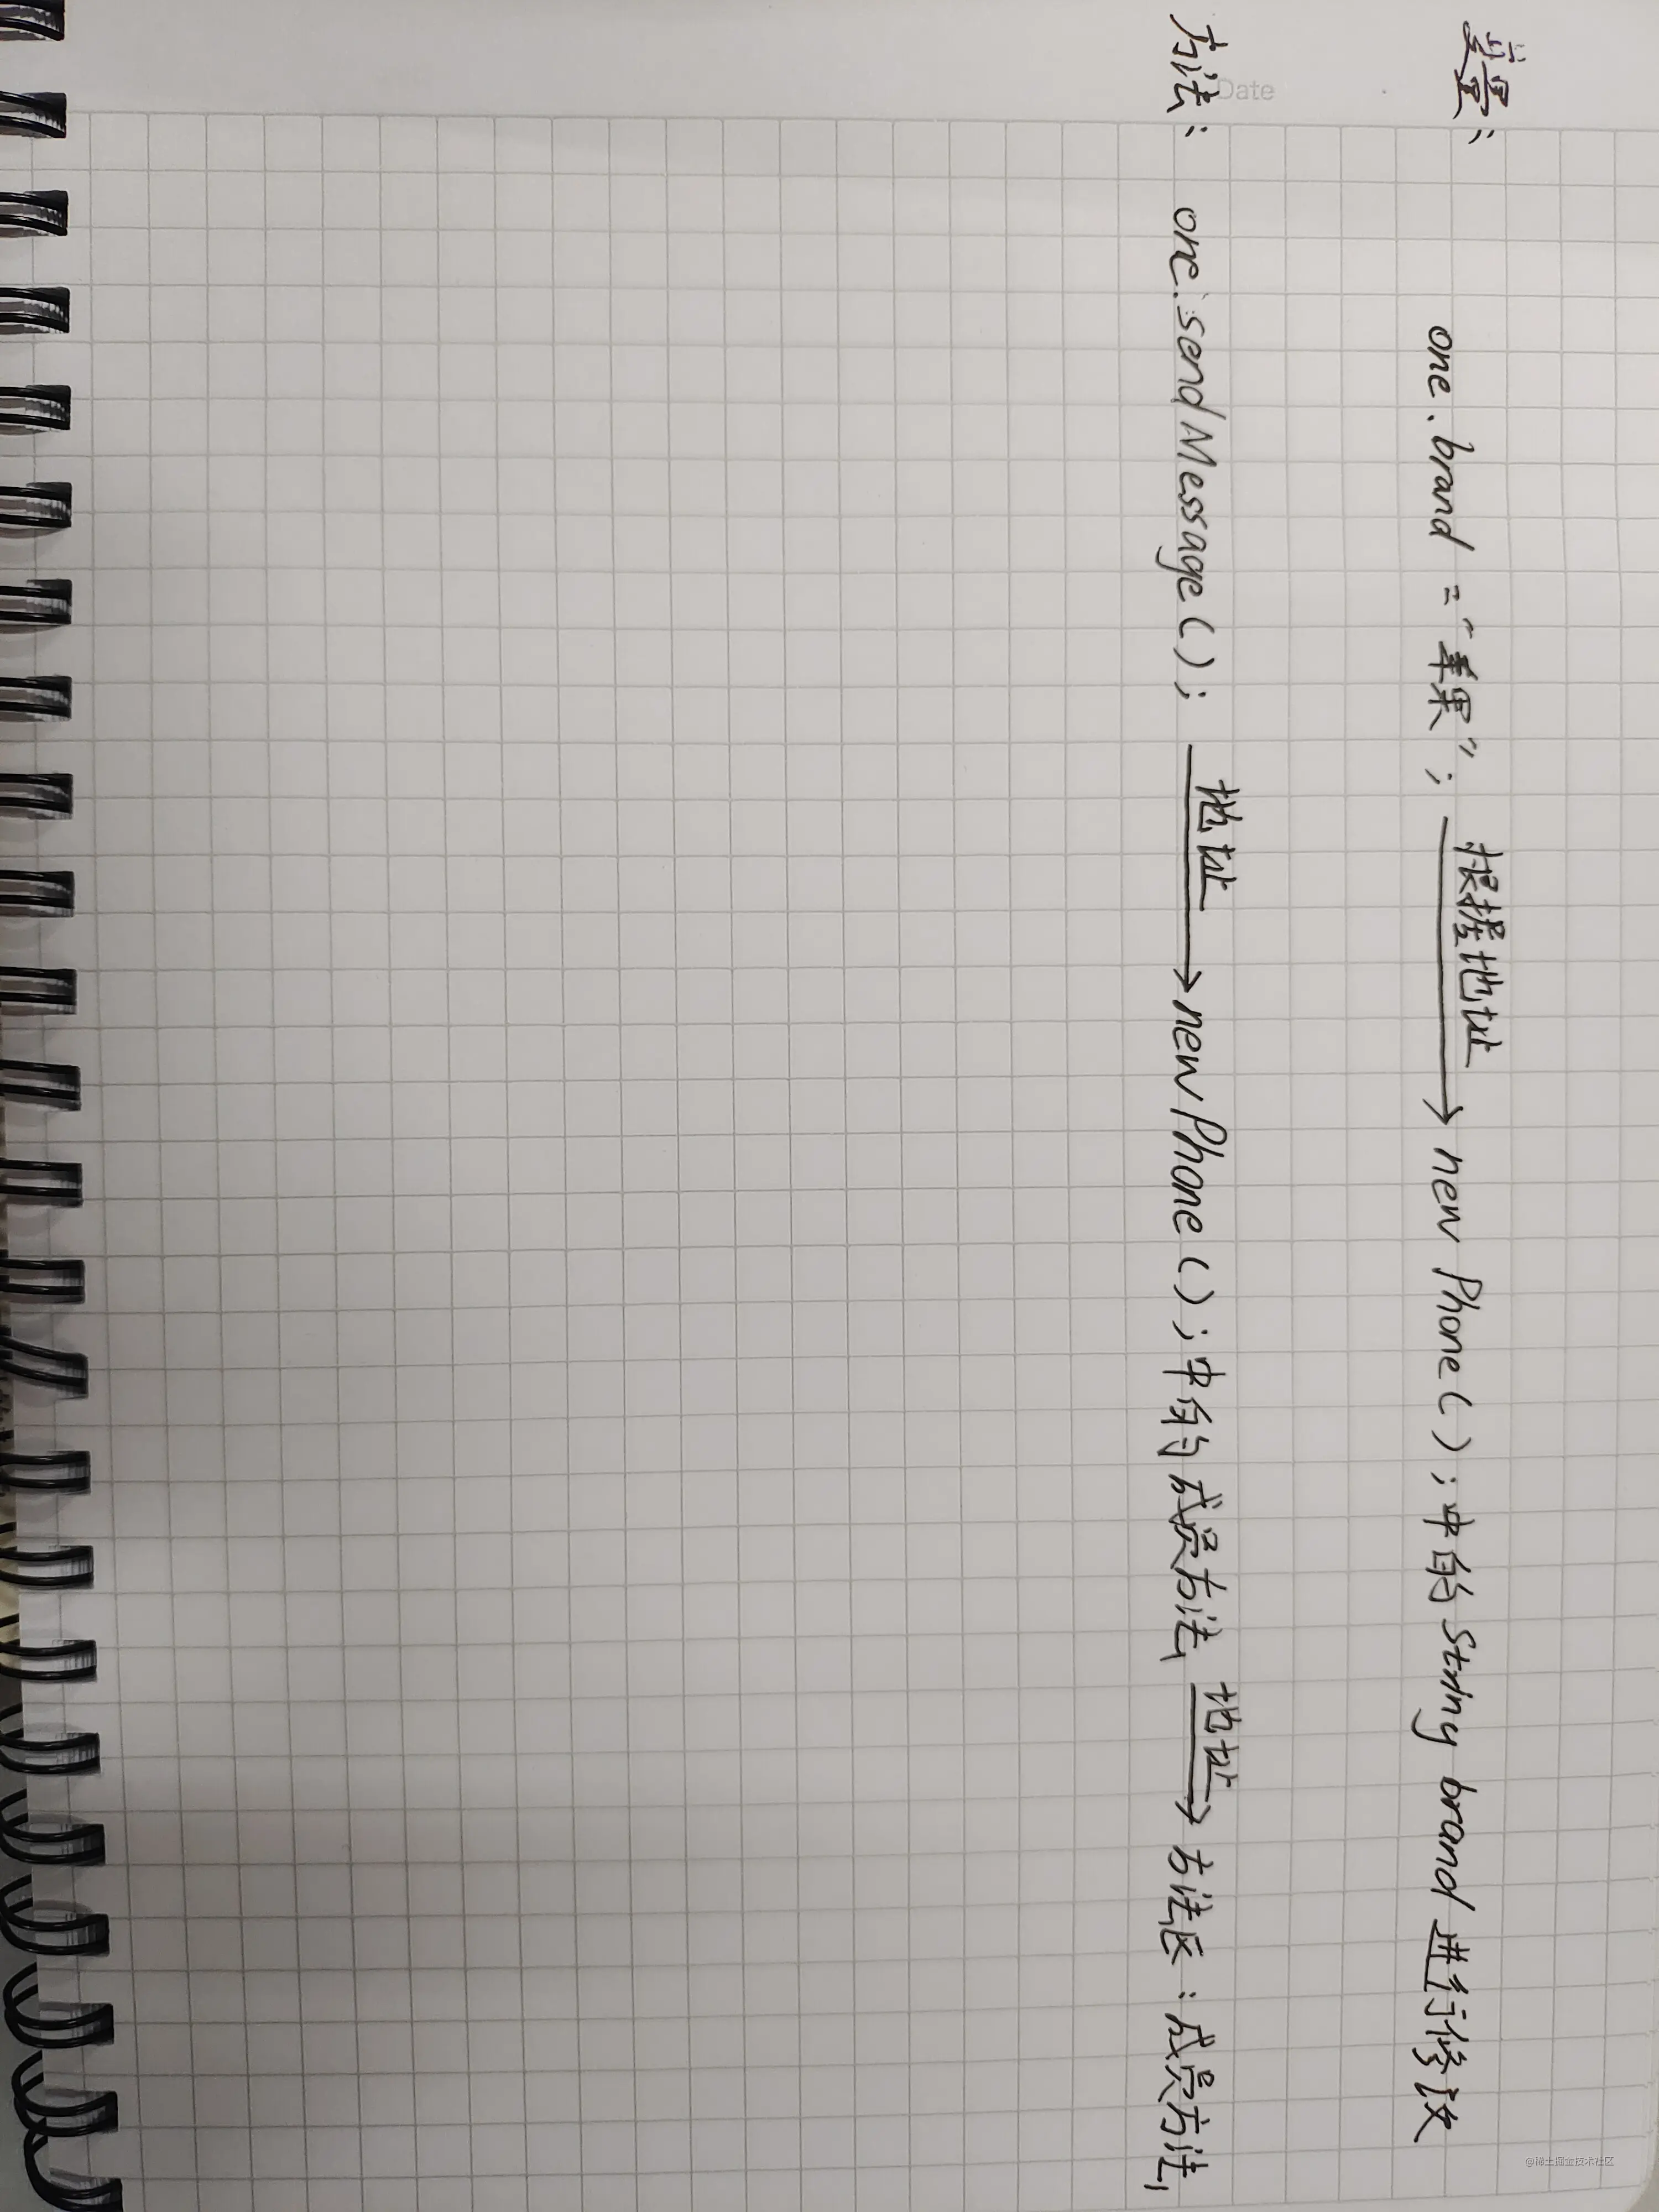 变量：
one.brand = "苹果"; 根据地址→ new Phone(); 中的 String brand 进行修改
Date
方法： one.sendMessage(); 地址→ new Phone(); 中的成员方法 地址→ 方法区：成员方法
@稀土掘金技术社区